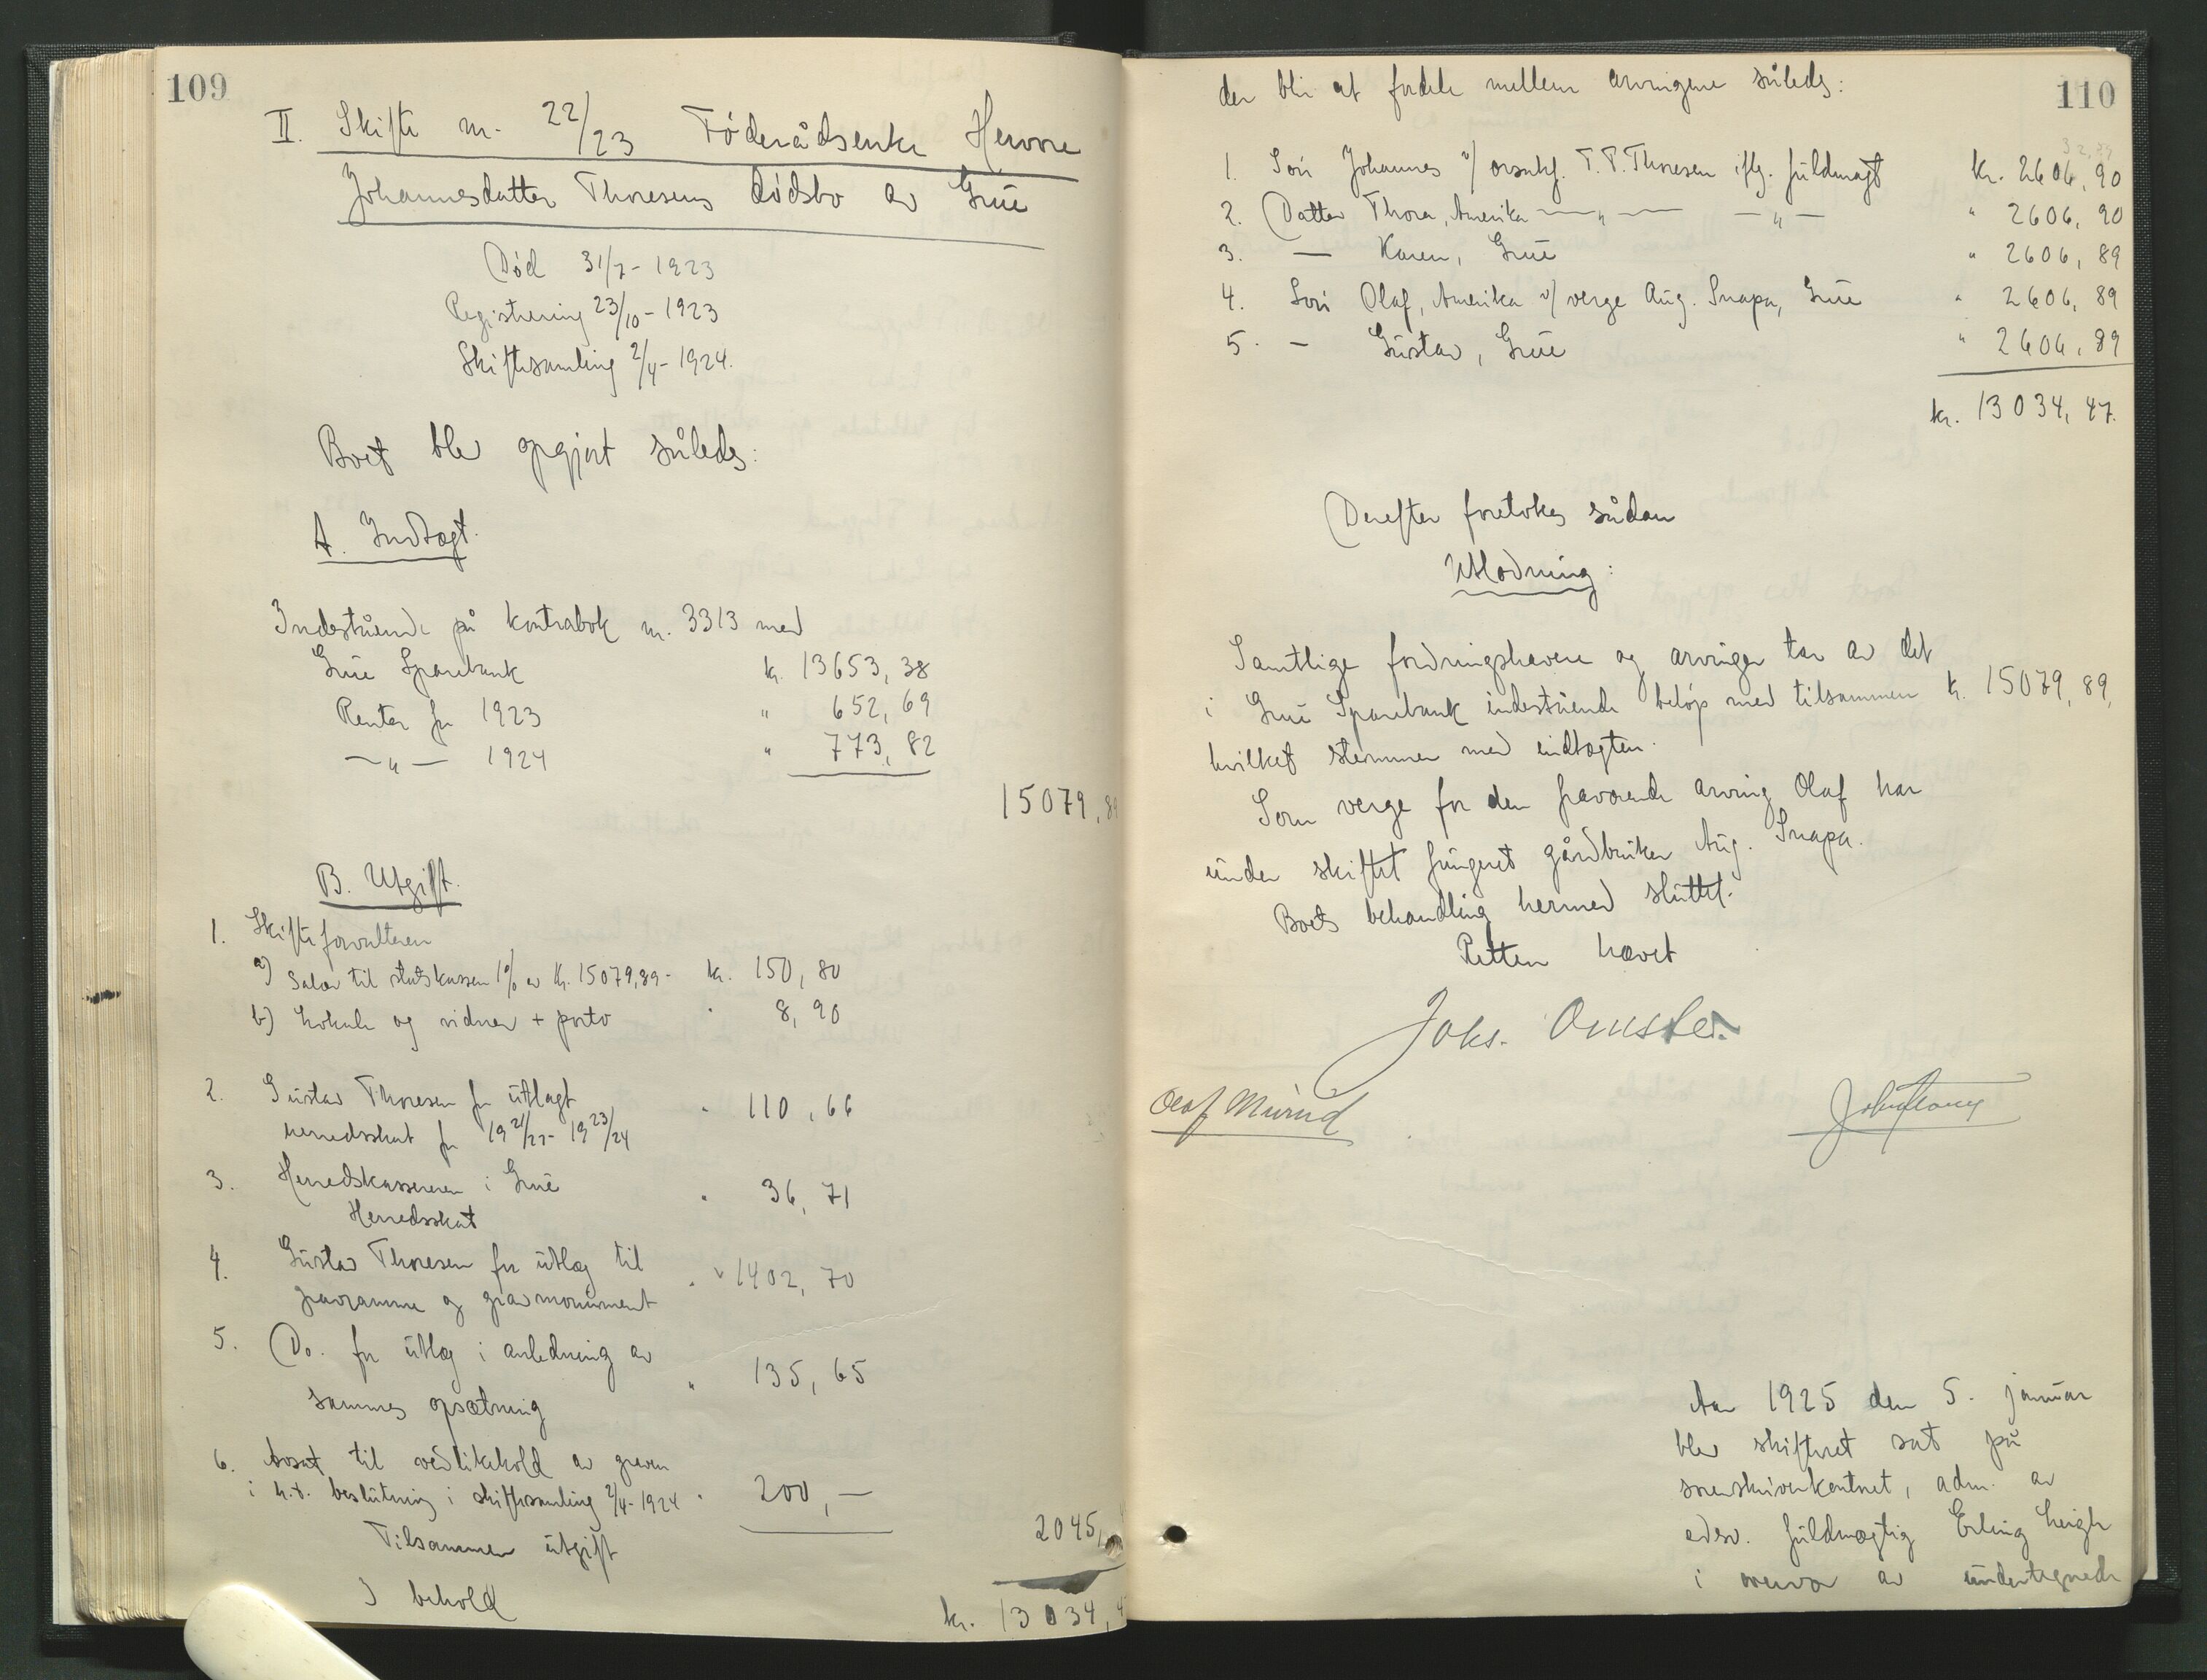 109
II. Skifte nr. 22/23 Föderådsenke
Johannesdatter Thoresens dödsbo av Grue
Död 31/7 - 1923
Registrering 23/10 - 1923
Skiftesamling 2/4 - 1924.
Boet blev opgjort således:
A. Indtægt.
Indestående på kontrabok nr. 3313 med
Grue Sparebank kr. 13653,38
Renter for 1923 " 652,69
—"— 1924 " 773,82
15079,89
B. Utgift.
1. Skifteforvalteren
a) Salær til statskassen 1% av kr. 15079,89 - kr. 150,80
b) Lokale og vidner + porto " 8,90
2. Gustav Thoresen for utlagt " 110,66
herredsskat for 19 21/22 - 19 23/24
3. Herredskassereren i Grue " 36,71
Herredsskat
4. Gustav Thoresen for utlæg til " 1402,70
gravramme og gravmonument
5. Do. for utlæg i anledning av " 135,65
sammes opsætning
6. Avsat til vedlikehold av graven
i h.t. beslutning i skiftesamling 2/4 - 1924 " 200,—
Tilsammen utgift 2045,
I behold kr. 13034,4
110
der blir at fordele mellem arvingene således:
1. Søn Johannes v/ T. P. Thoresen iflg. fuldmagt kr. 2606,90
2. Datter Thora, Amerika —"— —"— " 2606,90
3. — Karen, Grue " 2606,89
4. Søn Olaf, Amerika v/ verge Aug. Snapa, Grue " 2606,89
5. — Gustav, Grue " 2606,89
kr. 13034,47.
Derefter foretokes sådan
Utlodning:
Samtlige fordringshavere og arvinger tar av det
i Grue Sparebank indestående beløp med tilsammen kr. 15079,89,
hvilket stemmer med indtægten.
Som verge for den fraværende arving Olaf har
under skiftet fungeret gårdbruker Aug. Snapa.
Boets behandling hermed sluttet.
Retten hævet
Johs.
Olaf Murud
Aar 1925 den 5. januar
blev skifteret sat på
sorenskriverkontoret, adm. av
edsv. fuldmægtig Erling
i nærvær av undertegnede